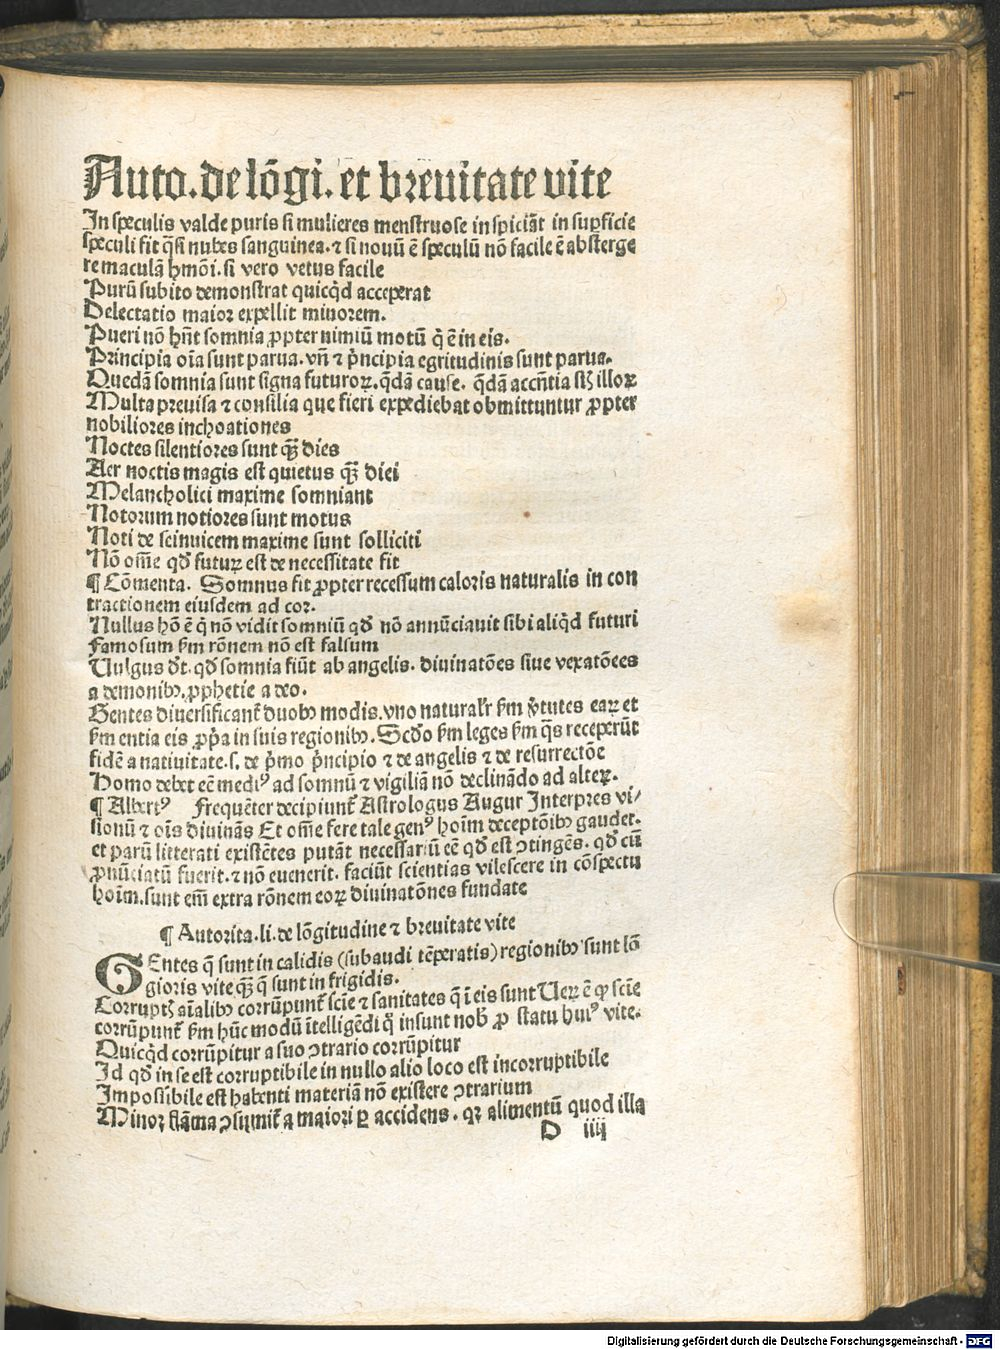 Auto. de lōgi. et breuitate vite
In speculis valde puris si mulieres menstruose inspiciāt in sup̱ficie
speculi fit q̄si nubes sanguinea. ⁊ si nouū ē speculū nō facile ē absterge
re maculā hmōi. si vero vetus facile
Purū subito demonstrat quicq̇d acceperat
Delectatio maior expellit minorem.
Pueri nō hn̄t somnia ꝓpter nimiū motū q̇ ē in eis.
Principia oīa sunt parua. vn̄ ⁊ p̄ncipia egritudinis sunt parua.
Quedā somnia sunt signa futuroꝝ. q̄dā cause. q̄dā accn̄tia sꝫ illoꝝ
Multa preuisa ⁊ consilia que fieri expediebat obmittuntur ꝓpter
nobiliores inchoationes
Noctes silentiores sunt qꝫ̄ dies
Aer noctis magis est quietus qꝫ̄ diei
Melancholici maxime somniant
Notorum notiores sunt motus
Noti de seinuicem maxime sunt solliciti
Nō om̄e qd̄ futuꝝ est de necessitate fit
¶ Cōmenta. Somnus fit ꝓpter recessum caloris naturalis in con
tractionem eiusdem ad cor.
Nullus hō ē q̇ nō vidit somniū qd̄ nō annūciauit sibi aliq̇d futuri
Famosum ẜm rōnem nō est falsum
Uulgus dt̄. qd̄ somnia fiūt ab angelis. diuinatōes siue vexatōees
a demonibꝰ. ꝓphetie a deo.
Gentes diuersificant᷑ duobꝰ modis. vno naturalr̄ ẜm v̓tutes eaꝝ et
ẜm entia eis ꝓp̄a in suis regionibꝰ. Scd̄o ẜm leges ẜm q̄s receperūt
fidē a natiuitate. s. de p̄mo p̄ncipio ⁊ de angelis ⁊ de resurrectōe
Homo debet eē mediꝰ ad somnū ⁊ vigiliā nō declinādo ad alteꝝ.
¶ Albertꝰ Frequēter decipiunt᷑ Astrologus Augur Interpres vi/
sionū ⁊ oīs diuināns Et om̄e fere tale genꝰ hoīm deceptōibꝰ gaudet.
et parū litterati existētes putāt necessariū eē qd̄ est ↄtingēs. qd̄ cū
ꝓnūciatū fuerit. ⁊ nō euenerit. faciūt scientias vilescere in cōspectu
hoīm. sunt em̄ extra rōnem eoꝝ diuinatōnes fundate
¶ Autorita. li. de lōgitudine ⁊ breuitate vite
GEntes q̄ sunt in calidis (subaudi tēperatis) regionibꝰ sunt lō
gioris vite qꝫ̄ q̄ sunt in frigidis.
Corruptꝫ aīalibꝰ corrūpunt᷑ scīe ⁊ sanitates q̄ ī eis sunt Ueꝝ ē ꝙ scīe
corrūpunt᷑ ẜm hūc modū ītelligēdi q̇ insunt nob̄ ꝓ statu huiꝰ vite.
Quicq̇d corrūpitur a suo ↄtrario corrūpitur
Id qd̄ in se est corruptibile in nullo alio loco est incorruptibile
Impossibile est habenti materiā nō existere ↄtrarium
Minor flāma ↄsumit᷑ a maiori ꝑ accidens. qꝛ alimentū quod illa
D iiij
Digitalisierung gefördert durch die Deutsche Forschungsgemeinschaft - DFG